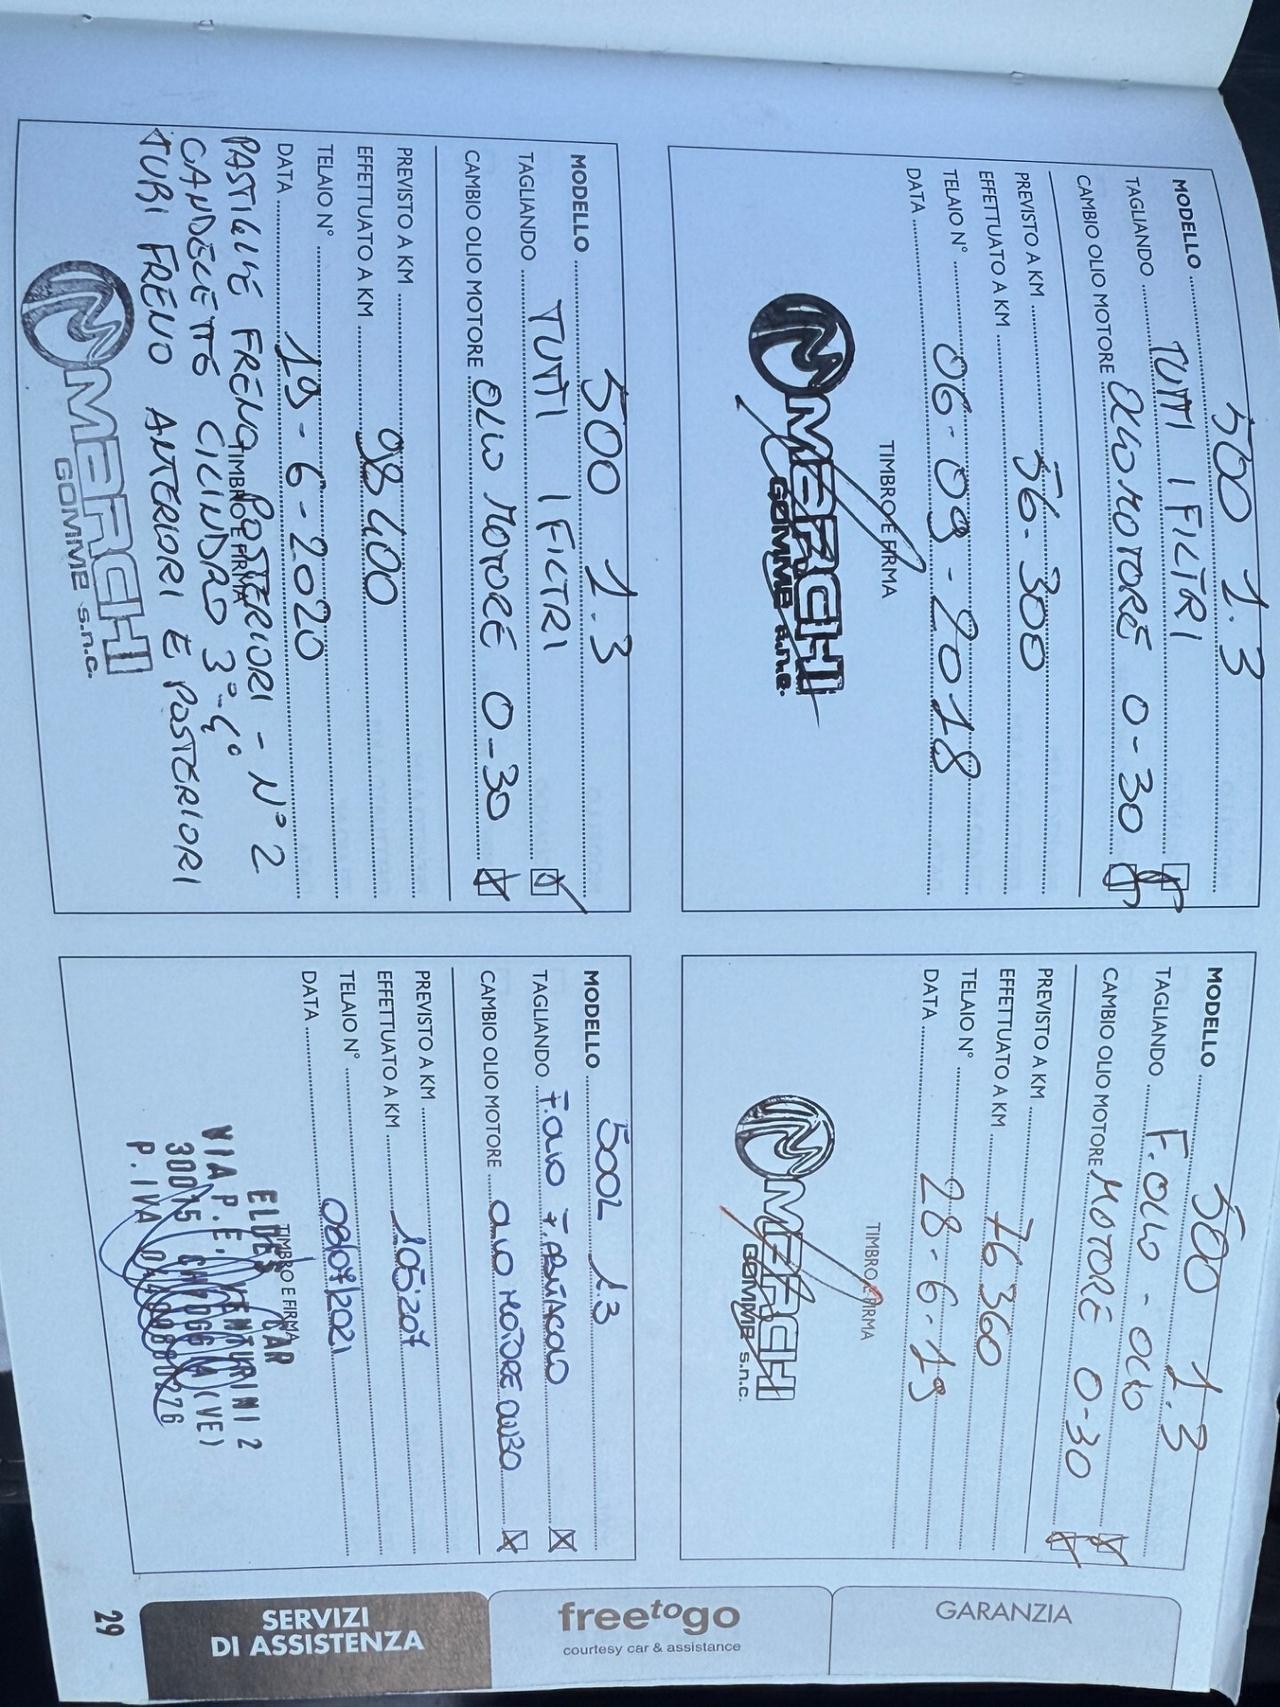 MODELLO 500 1.3
TAGLIANDO TUTTI I FILTRI
CAMBIO OLIO MOTORE OLIO MOTORE 0-30
PREVISTO A KM
EFFETTUATO A KM 56.300
TELAIO N°
DATA 06-09-2018
TIMBRO E FIRMA
MERCHI
GOMME s.n.c.
MODELLO 500 1.3
TAGLIANDO F.OLIO - OLIO
CAMBIO OLIO MOTORE MOTORE 0-30
PREVISTO A KM
EFFETTUATO A KM 76360
TELAIO N°
DATA 28-6-19
TIMBRO E FIRMA
MERCHI
GOMME s.n.c.
MODELLO 500 1.3
TAGLIANDO TUTTI I FILTRI
CAMBIO OLIO MOTORE OLIO MOTORE 0-30
PREVISTO A KM
EFFETTUATO A KM 98400
TELAIO N°
DATA 19-6-2020
PASTIGLIE FRENO POSTERIORI - N°2
TIMBRO E FIRMA
CANDELETTE CILINDRO 3°-4°
TUBI FRENO ANTERIORI E POSTERIORI
MERCHI
GOMME s.n.c.
MODELLO 500L 1.3
TAGLIANDO F.OLIO F.ABITACOLO
CAMBIO OLIO MOTORE OLIO MOTORE 0W30
PREVISTO A KM
EFFETTUATO A KM 105'207
TELAIO N°
DATA 08/07/2021
TIMBRO E FIRMA
CAR
VIA P.E. VENTURINI 2
30015 CHIOGGIA (VE)
P.IVA
GARANZIA
freetogo
courtesy car & assistance
SERVIZI
DI ASSISTENZA
29